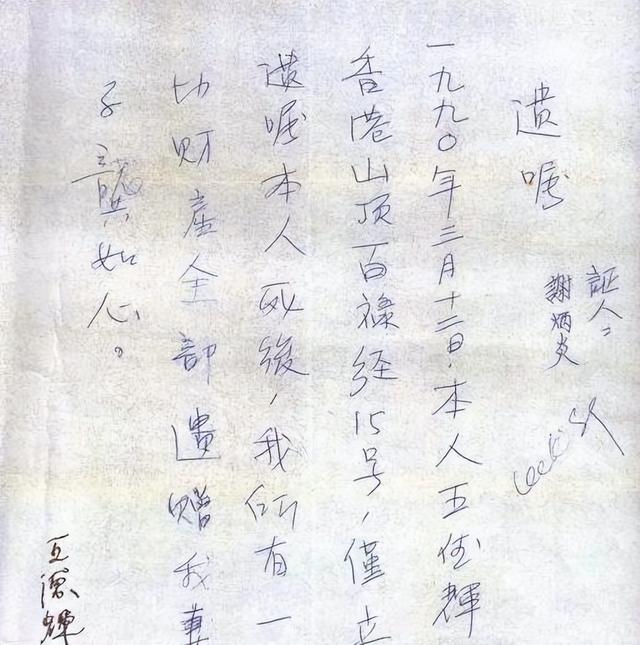 遺嘱
証人:
謝炳炎
一九九〇年三月十二日,本人王德輝
香港山顶百禄経15号,僅立
遺嘱本人死後,我所有一
切财産全部遺赠我妻
子龔如心。
王德輝